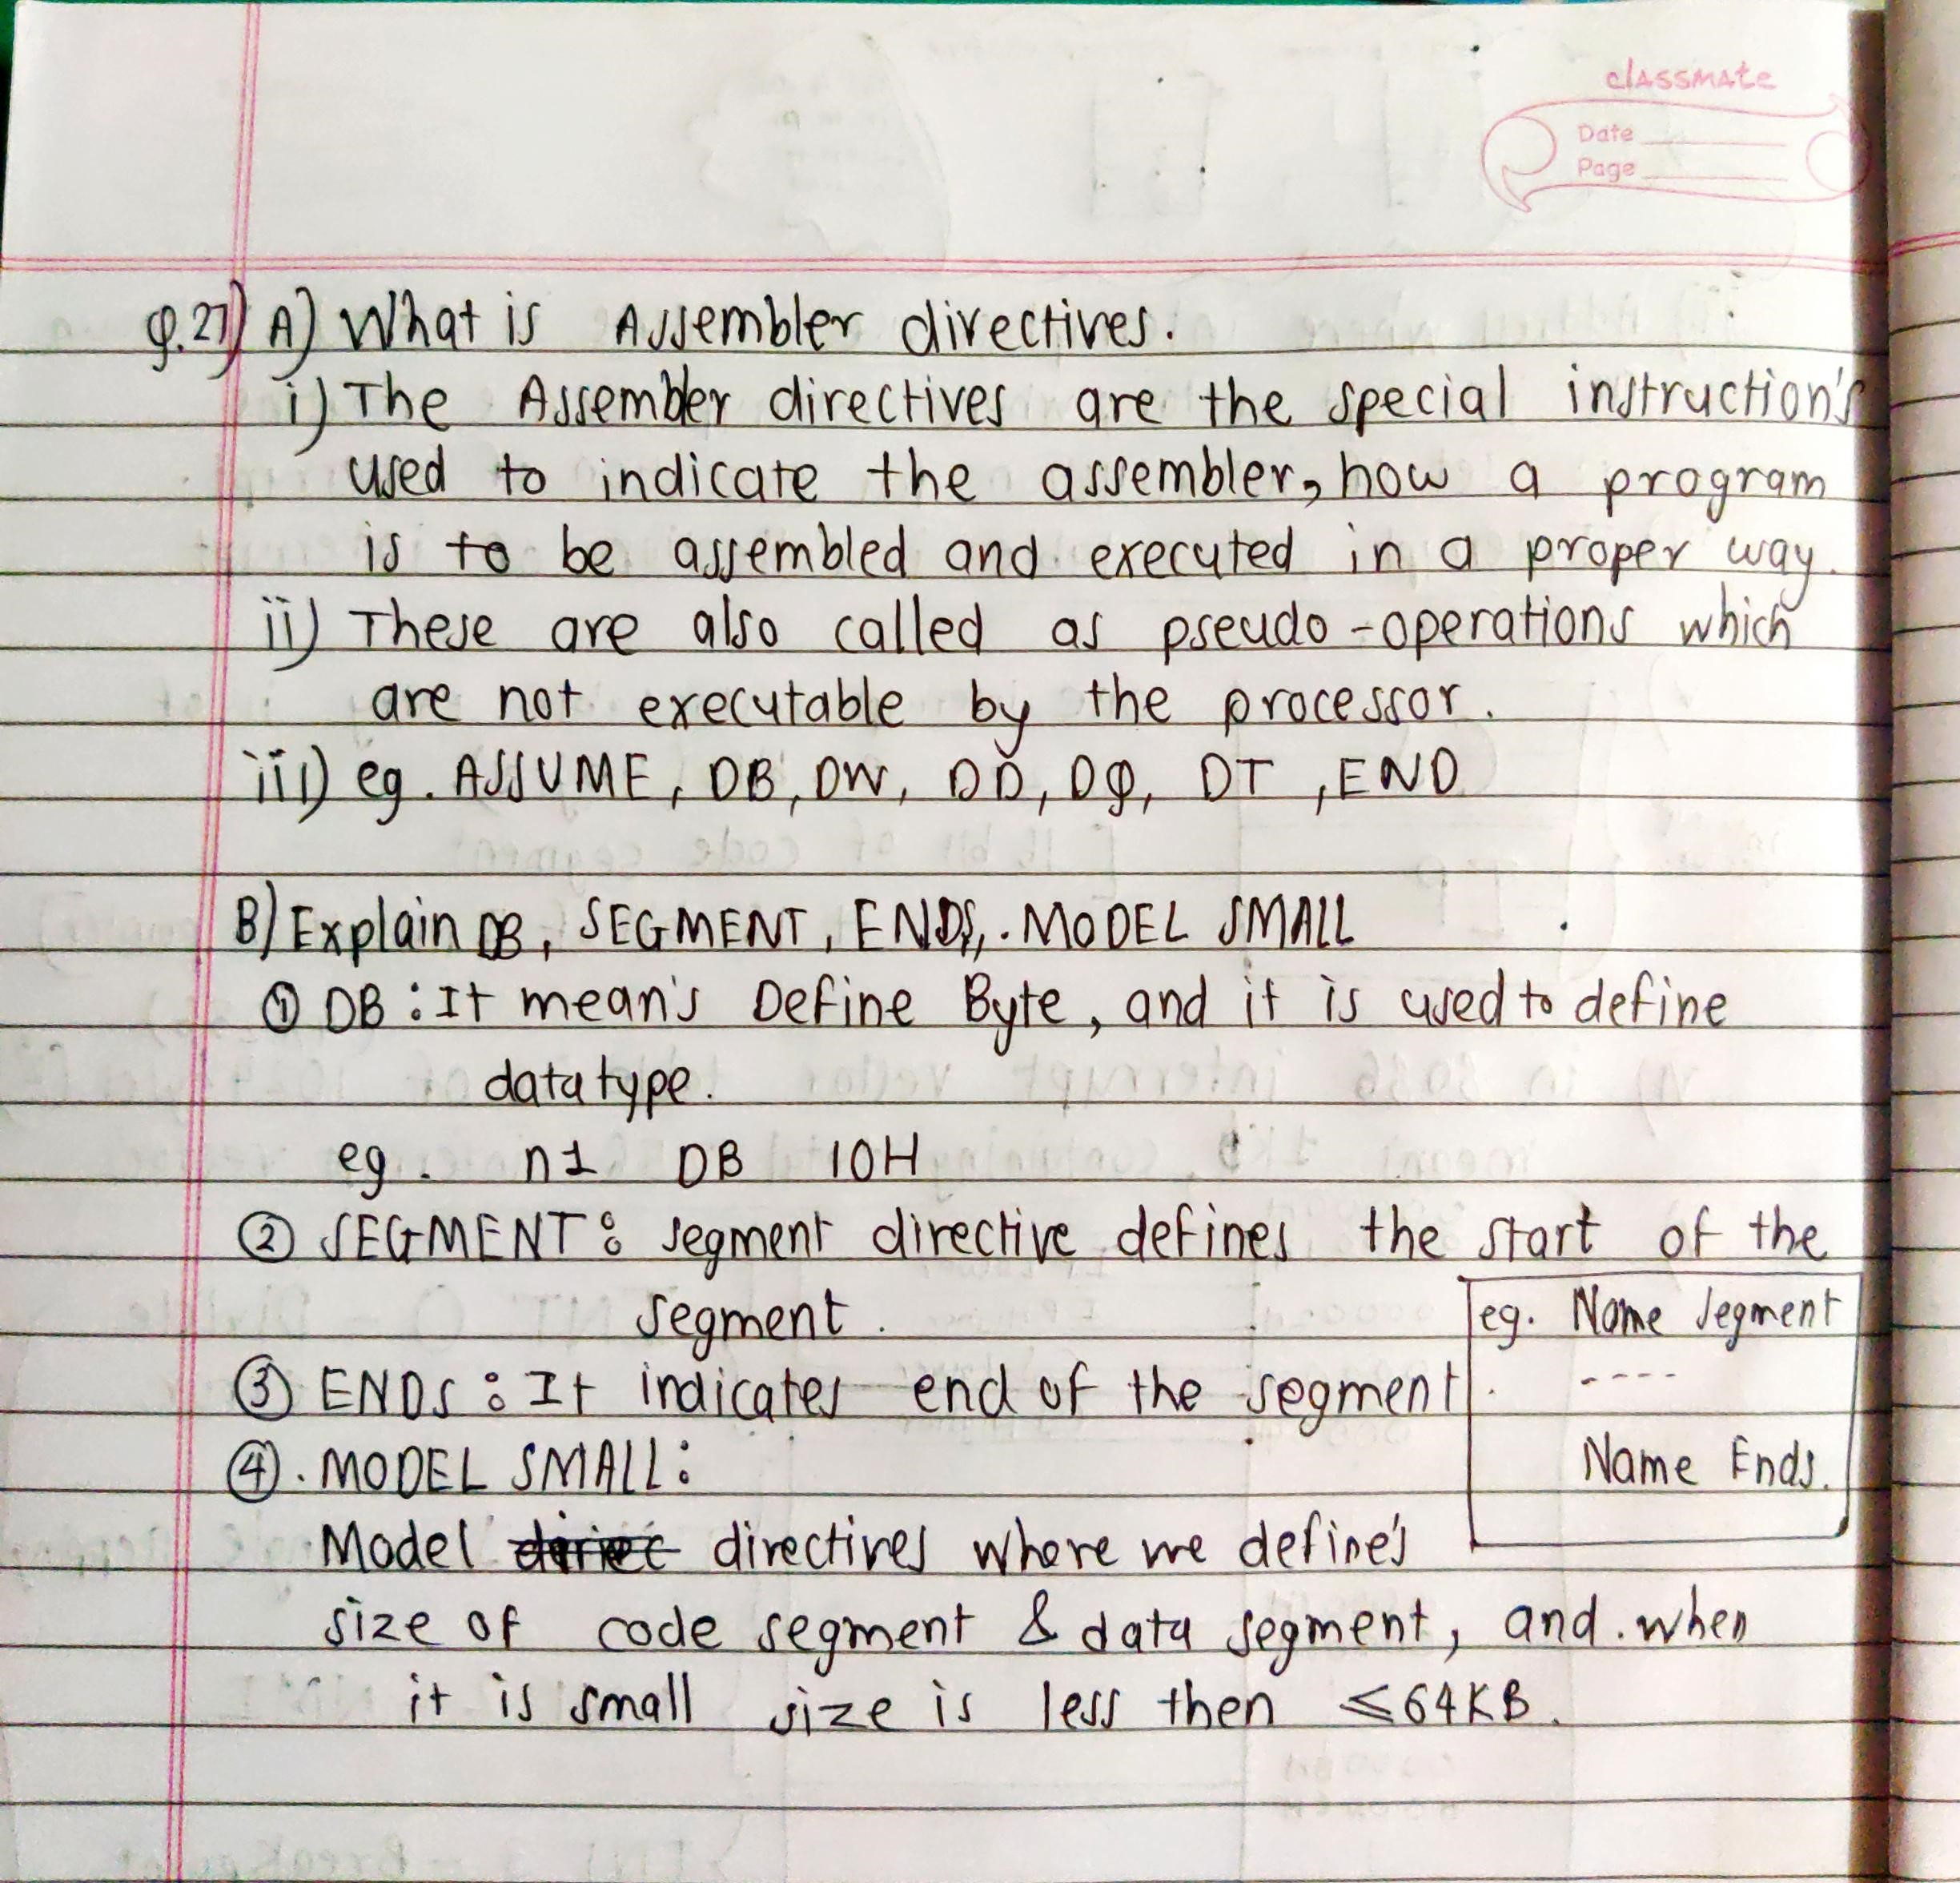 classmate
Date
Page
Q.27) A) What is Assembler directives.
i) The Assembler directives are the special instruction's
used to indicate the assembler, how a program
is to be assembled and executed in a proper way.
ii) These are also called as pseudo-operations which
are not executable by the processor.
iii) eg. ASSUME, DB, DW, DD, DQ, DT, END
B) Explain DB, SEGMENT, ENDS, .MODEL SMALL
① DB : It mean's Define Byte, and it is used to define
datatype.
eg. n1 DB 10H
② SEGMENT : segment directive defines the start of the
segment.
③ ENDS : It indicates end of the segment.
eg. Name Segment
----
Name Ends.
④ .MODEL SMALL :
Model directives where we define's
size of code segment & data segment, and when
it is small size is less then ≤64KB.